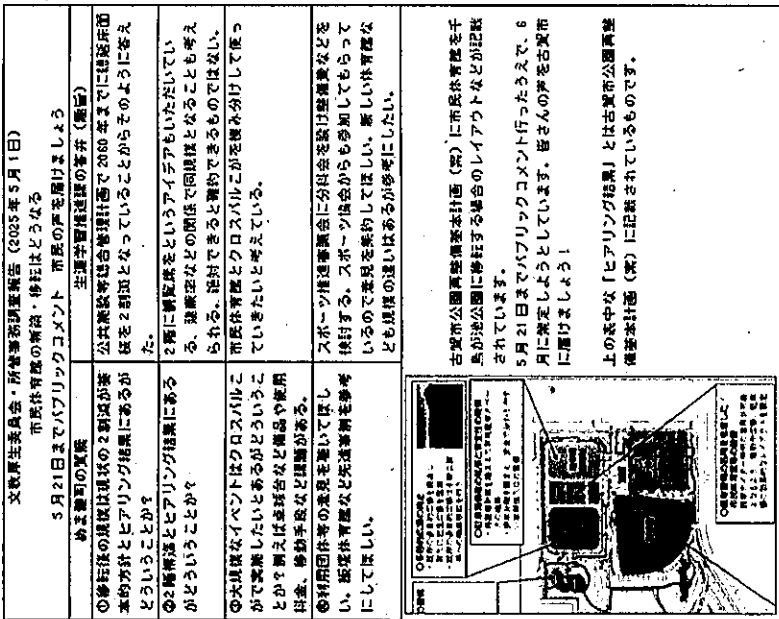 文教厚生委員会・所管事務調査報告（2025年5月1日）
市民体育館の新築・移転はどうなる
5月21日までパブリックコメント 市民の声を届けましょう
ぬま健司の質疑
生涯学習推進課の答弁（趣旨）
①移転後の規模は現状の2割減が基
本的方針とヒアリング結果にあるが
どういうことか？
公共施設等総合管理計画で2060年までに総延床面
積を2割減となっていることからそのように答え
た。
②2階構造とヒアリング結果にある
がどういうことか？
2階に観覧席をというアイデアもいただいてい
る。健康室などの関係で同規模となることも考え
られる。絶対できると確約できるものではない。
③大規模なイベントはクロスパルこ
がで実施したいとあるがどういうこ
とか？例えば卓球台など備品や使用
料金、移動手段など課題がある。
市民体育館とクロスパルこがを棲み分けして使っ
ていきたいと考えている。
④利用団体等の意見を聴いてほし
い。飯塚体育館など先進事例を参考
にしてほしい。
スポーツ推進審議会に分科会を設け整備費などを
検討する。スポーツ協会からも参加してもらって
いるので意見を集約してほしい。新しい体育館な
ども規模の違いはあるが参考にしたい。
古賀市公園再整備基本計画（案）に市民体育館を千
鳥が池公園に移転する場合のレイアウトなどが記載
されています。
5月21日までパブリックコメント行ったうえで、6
月に策定しようとしています。皆さんの声を古賀市
に届けましょう！
上の表中な「ヒアリング結果」とは古賀市公園再整
備基本計画（案）に記載されているものです。